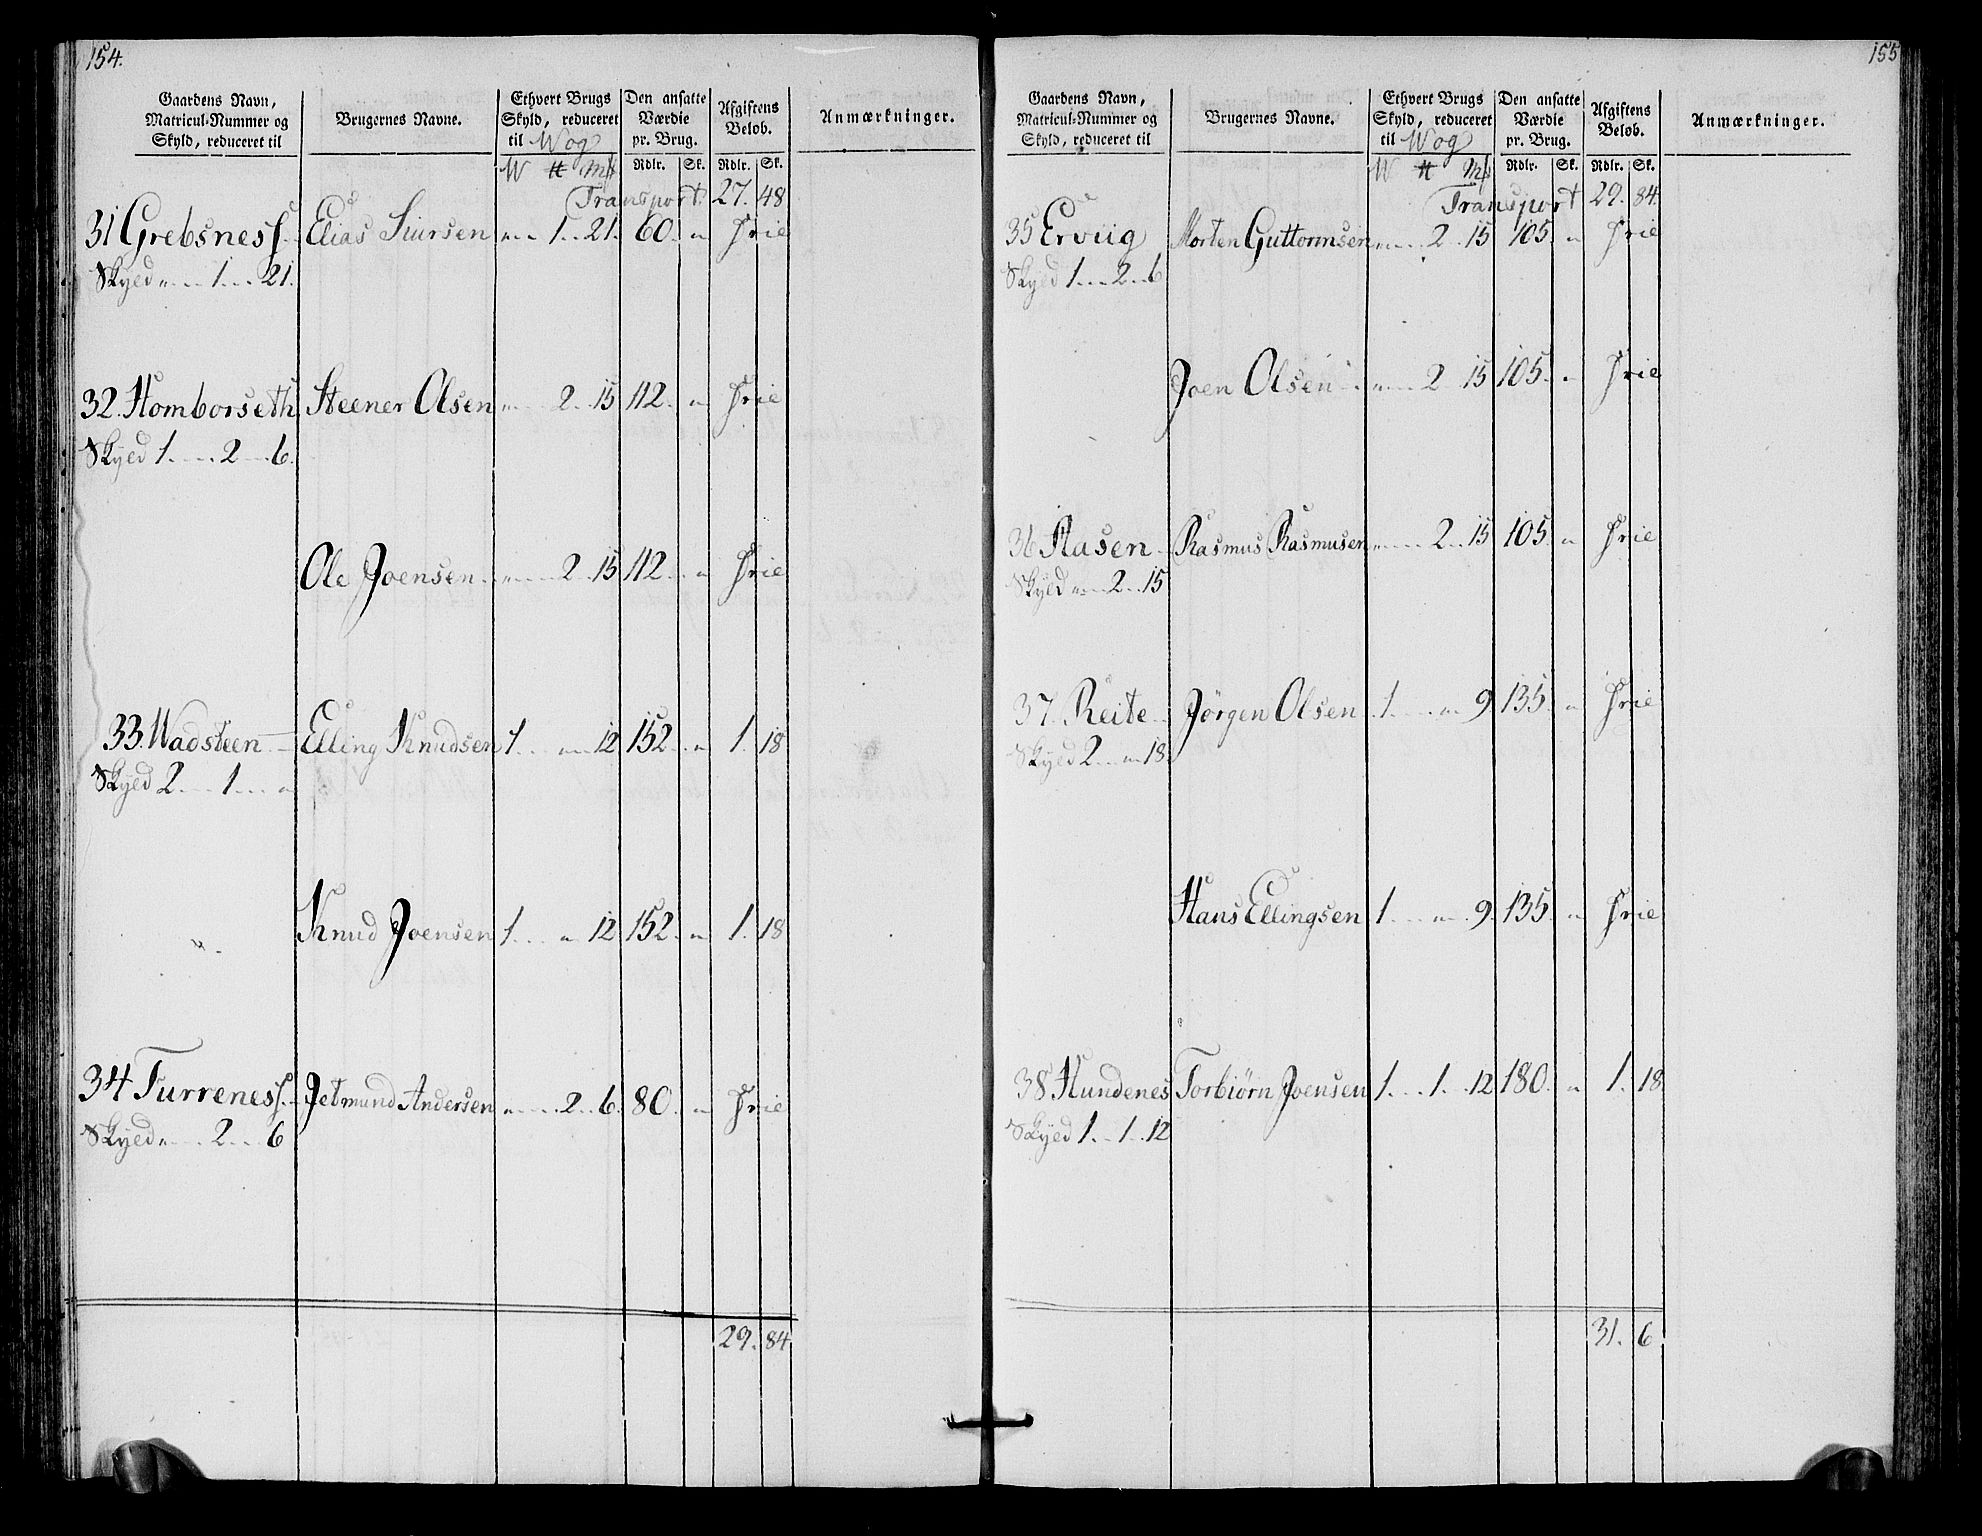 154.
Gaardens Navn, Matricul-Nummer og Skyld, reduceret til
Brugernes Navne.
Ethvert Brugs Skyld, reduceret til Wog
Den ansatte Værdie pr. Brug.
Afgiftens Beløb.
Anmærkninger.
W ℔ mk Rdlr. Sk. Rdlr. Sk.
Transport 27. 48
31 Grebsness. Elias Siursen „ 1. 21. 60. „ Frie
Skyld „ 1. 21.
32. Homborseth Steener Olsen „ 2. 15 112. „ Frie
Skyld 1. 2. 6.
Ole Joensen „ 2. 15 112. „ Frie
33. Wadsteen Elling Knudsen 1. „ 12 152. „ 1. 18
Skyld 2. 1. „
Knud Joensen 1. „ 12 152. „ 1. 18
34 Turreness. Jetmund Andersen „ 2. 6. 80. „ Frie
Skyld „ 2. 6
29. 84
155
Gaardens Navn, Matricul-Nummer og Skyld, reduceret til
Brugernes Navne.
Ethvert Brugs Skyld, reduceret til Wog
Den ansatte Værdie pr. Brug.
Afgiftens Beløb.
Anmærkninger.
W ℔ mk Rdlr. Sk. Rdlr. Sk.
Transport 29. 84.
35 Erviig Morten Guttormsen „ 2. 15 105. „ Frie
Skyld 1. 2. 6
Joen Olsen „ 2. 15 105. „ Frie
36 Aasen Rasmus Rasmusen „ 2. 15 105. „ Frie
Skyld „ 2. 15
37. Reite Jörgen Olsen 1. „ 9 135. „ Frie
Skyld 2. „ 18.
Hans Ellingsen 1. „ 9. 135. „ Frie
38 Hundenes Torbiörn Joensen 1. 1. 12 180. „ 1. 18
Skyld 1. 1. 12
31. 6